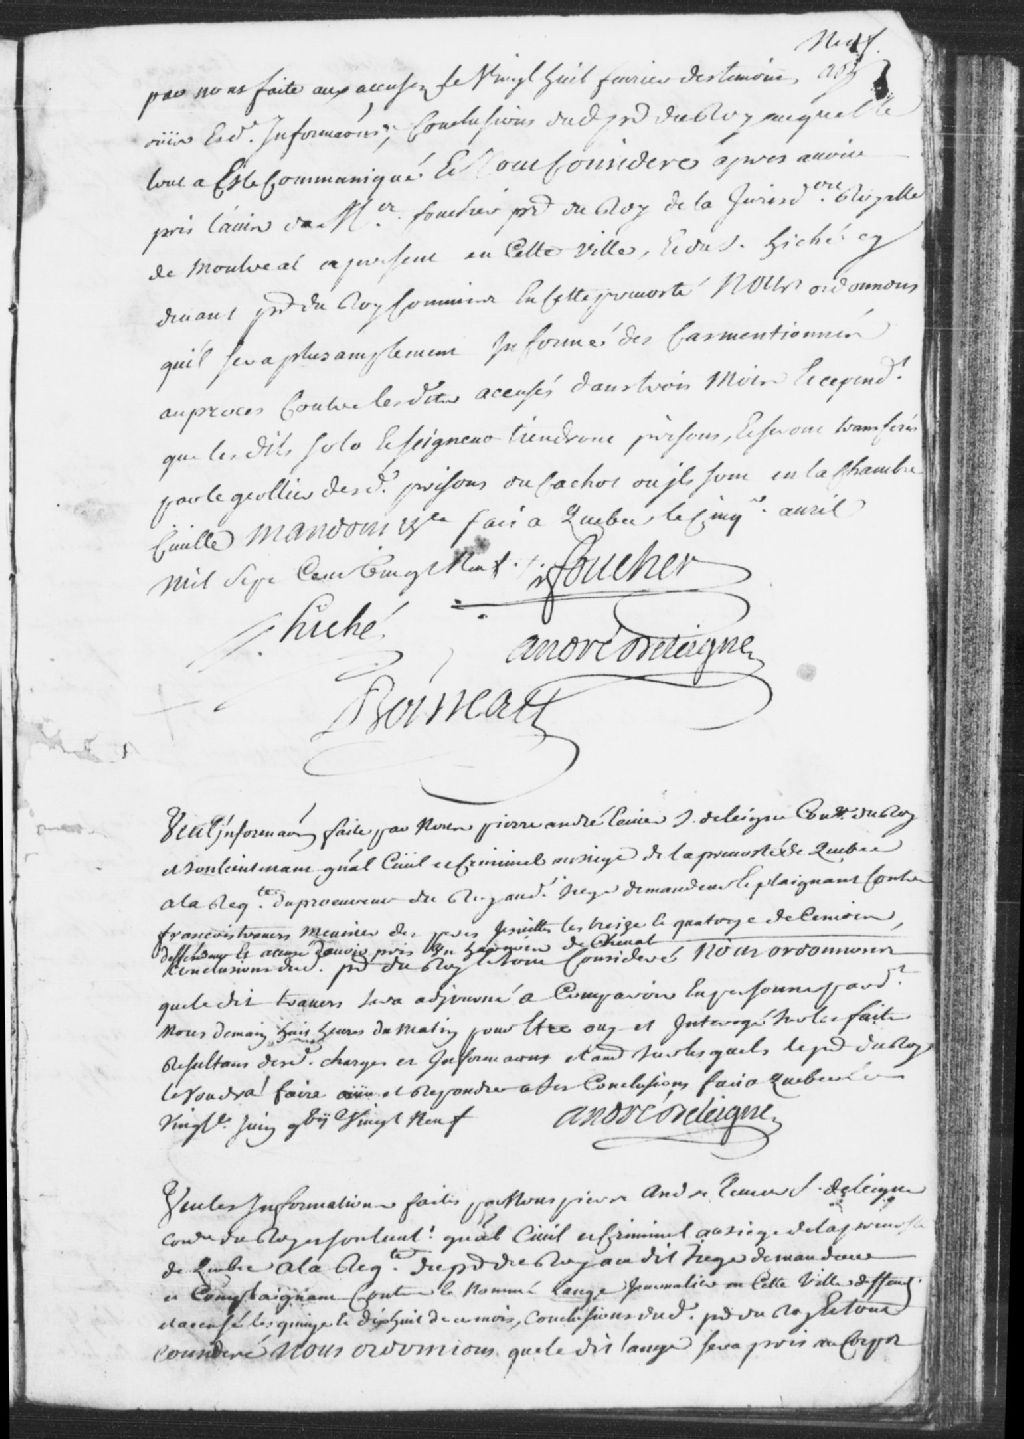 Neuf.
par nous faite aux accusez le Vingt huit fevrier des temoins
ouis Esd. Informaons, Conclusions dud prd du Roy auquel le
tout a Esté Communiqué Et Tout Consideré apres avoir
pris lavis de Mr. foucher prd du Roy de la Jurisdon. Royalle
de Montreal apresent en Cette Ville, Et du S. hiché cy
devant prd du Roy Commis En Cette prevosté Nous ordonnons
qu'il sera plus amplement Informé des Cas mentionnés
au proces Contre lesdits accusés dans trois Mois Et cepend.t
que les dits solo Et seigneur tiendront prisons, Et seront transferés
par le geollier desd. prisons du Cachot ou ils sont en la Chambre
Civille Mandons &a fait a Quebec le Cinq.e avril
Mil Sept Cent Vingt Neuf.
foucher
hiché
andré deleigne
Boisseau
Veu l'informaon faite par Nous pierre andré Ecuier S. deleigne Con.er du Roy
et son lieutenant gnal Civil et Criminel au siege de la prevosté de Quebec
a la Reqte. du procureur du Roy aud. siege demandeur et plaignant Contre
francois travers Meunier des peres Jesuittes les treize et quatorze de Ce mois,
deffendeur et accusé d'avoir pris Un harnois de Cheval
Conclusions dud. prd du Roy Et tout Consideré Nous ordonnons
que le dit travers sera adjourné a Comparoir En personne pard.t
Nous demain huit heures du Matin pour Etre ouy et Interrogé sur les faits
Resultans desd. charges et Informaons et aud sur lesquels le prd du Roy
le voudra faire ouir et Repondre a ses Conclusions fait a Quebec le
Vingt.e Juin gbij.c Vingt Neuf
andré deleigne
Veu les Informations faites par Nous pierre André Ecuier S. deleigne
Coner du Roy et son lieut.t gnal Civil et Criminel au siege de la prevosté
de Quebec a la Reqte. du prd du Roy au dit siege demandeur
et Complaignant Contre le Nommé lange Journalier en Cette Ville deffend.
et accusé les quinze et dix huit de ce mois, Conclusions dud. prd du Roy Et tout
consideré Nous ordonnons que le dit lange sera pris au Corps